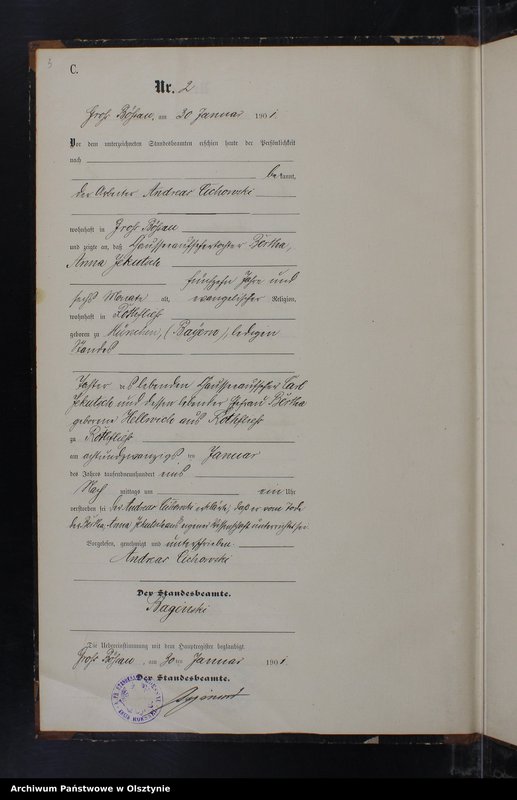 3
C.
Nr. 2
Groß Bößau, am 30 Januar 1901.
Vor dem unterzeichneten Standesbeamten erschien heute der Persönlichkeit
nach
be kannt,
der Arbeiter Andreas Cichowski
wohnhaft in Groß Bößau
und zeigte an, daß Tochter Bertha,
Anna Jekutsch
fünfzehn Jahre und
sechs Monate alt, evangelischer Religion,
wohnhaft in Rothfließ
geboren zu München, (Bayern), ledigen
Standes
Tochter des lebenden Carl
Jekutsch und dessen lebender Ehefrau Bertha
geborene Hellwich aus Rothfließ
zu Rothfließ
am achtundzwanzigsten Januar
des Jahres tausendneunhundert eins
Nach mittags um ein Uhr
verstorben sei der Andreas Cichowski erklärte, daß er vom Tode
der Bertha Anna Jekutsch aus eigener Wissenschaft unterrichtet sei.
Vorgelesen, genehmigt und unterschrieben.
Andreas Cichowski
Der Standesbeamte.
Baginski
Die Uebereinstimmung mit dem Hauptregister beglaubigt.
Groß Bößau, am 30ten Januar 1901.
Der Standesbeamte.
Archiwum Państwowe w Olsztynie